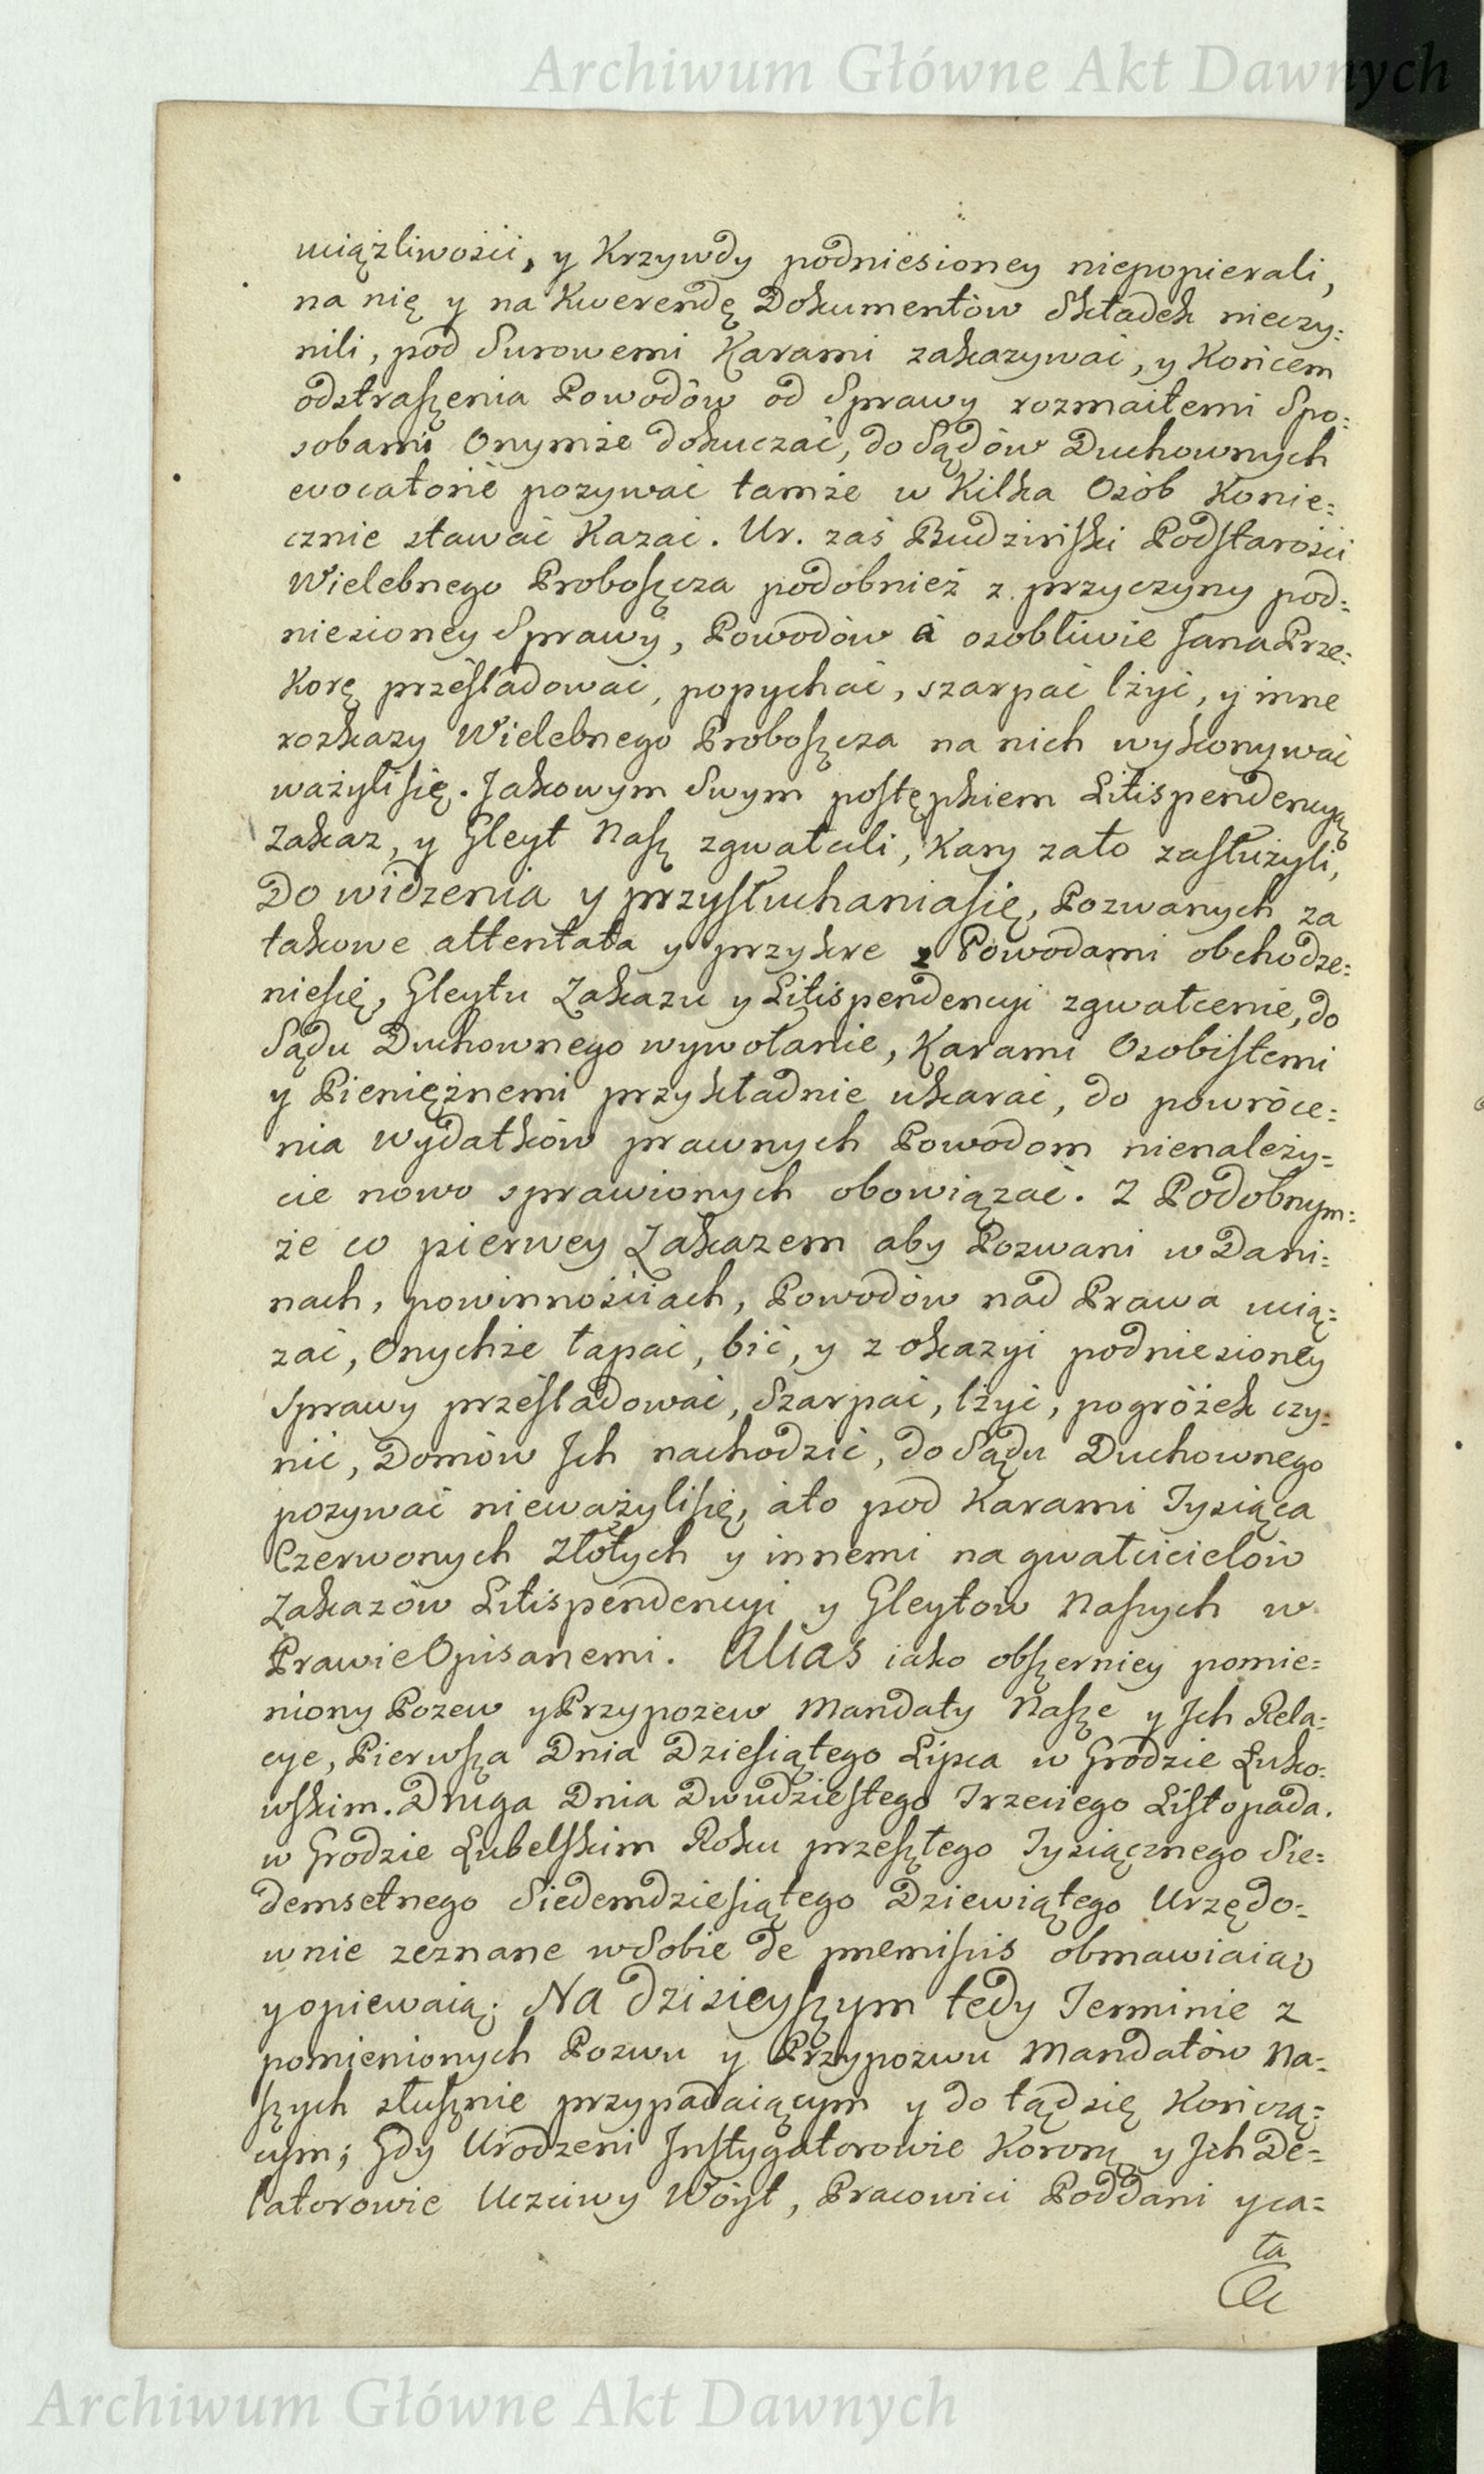 Archiwum Główne Akt Dawnych
uciążliwości, y Krzywdy podniesioney niepopierali,
na nię y na Kwerendę Dokumentów Składek nieczy:
nili, pod Surowemi Karami zakazywać, y Końcem
odstraszenia Powodów od Sprawy rozmaitemi Spo:
sobami Onymże dokuczać, do Sądów Duchownych
evocatorie pozywać tamże w Kilka Osób Konie:
cznie stawać Kazać. Ur. zaś Budziński Podstarości
Wielebnego Proboszcza podobnież z przyczyny pod:
niesioney Sprawy, Powodów à osobliwie Jana Prze:
Korę prześladować, popychać, szarpać lżyć, y inne
rozkazy Wielebnego Proboszcza na nich wykonywać
ważyli się. Jakowym Swym postępkiem Litispendencyą
Zakaz, y Gleyt Nasz zgwałcili, Kary zato zasłużyli,
Do widzenia y przysłuchaniasię, Pozwanych za
takowe attentata y przykre z Powodami obchodze:
niesię, Gleytu Zakazu y Litispendencyi zgwałcenie, do
Sądu Duchownego wywołanie, Karami Osobistemi
y Pieniężnemi przykładnie ukarać, do powróce:
nia Wydatków prawnych Powodom nienależy:
cie nowo sprawionych obowiązać. Z Podobnym:
że co pierwey Zakazem aby Pozwani w Dani:
nach, powinnościach, Powodów nad Prawa ucią:
zać, Onychże łapać, bić, y z okazyi podniesioney
Sprawy prześladować, Szarpać, lżyć, pogróżek czy:
nić, Domów Ich nachodzić, do Sądu Duchownego
pozywać nieważylisię, ato pod Karami Tysiąca
Czerwonych Złotych y innemi na gwałcicielów
Zakazów Litispendencyi y Gleytów Naszych w
Prawie Opisanemi. Alias iako obszerniey pomie:
niony Pozew y Przypozew Mandaty Nasze y Ich Rela:
cye, Pierwsza Dnia Dziesiątego Lipca w Grodzie Łuko:
wskim. Druga Dnia Dwudziestego Trzeciego Listopada.
w Grodzie Lubelskim Roku przeszłego Tysiącznego Sie:
demsetnego Siedemdziesiątego Dziewiątego Urzędo:
wnie zeznane w Sobie de premissis obmawiaią
y opiewaią. Na dzisieyszym tedy Terminie z
pomienionych Pozwu y Przypozwu Mandatów Na:
szych słusznie przypadaiącym y do tąd się Kończą:
cym; Gdy Urodzeni Instygatorowie Koronni y Ich De:
latorowie Uczciwy Wóyt, Pracowici Poddani y ca:
ła
Archiwum Główne Akt Dawnych